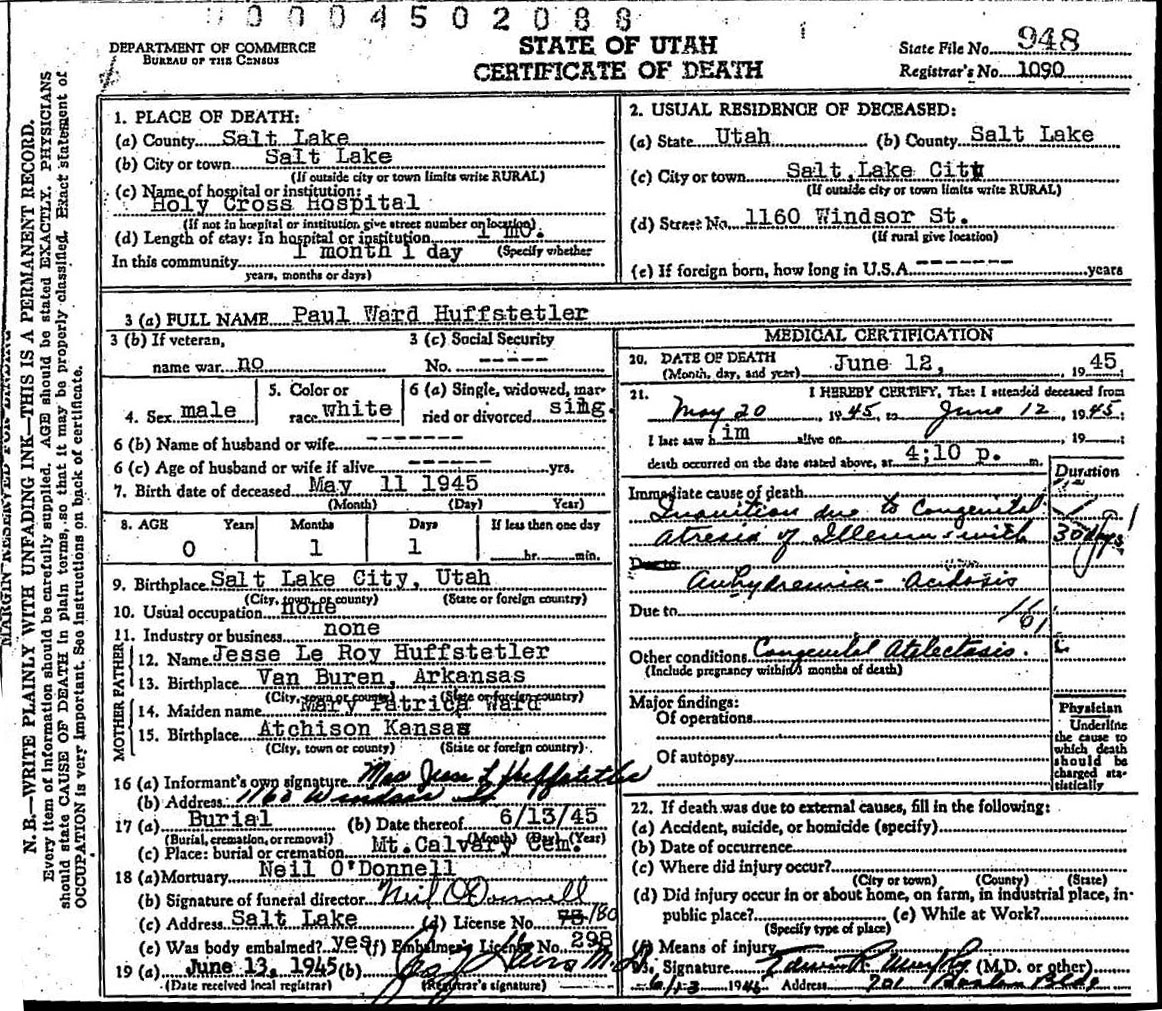 00004502088
DEPARTMENT OF COMMERCE
BUREAU OF THE CENSUS
STATE OF UTAH
CERTIFICATE OF DEATH
State File No. 948
Registrar's No. 1090
MARGIN RESERVED FOR BINDING
N. B.—WRITE PLAINLY WITH UNFADING INK—THIS IS A PERMANENT RECORD.
Every item of information should be carefully supplied. AGE should be stated EXACTLY. PHYSICIANS
should state CAUSE OF DEATH in plain terms, so that it may be properly classified. Exact statement of
OCCUPATION is very important. See instructions on back of certificate.
1. PLACE OF DEATH:
(a) County Salt Lake
(b) City or town Salt Lake
(If outside city or town limits write RURAL)
(c) Name of hospital or institution:
Holy Cross Hospital
(If not in hospital or institution give street number or location)
(d) Length of stay: In hospital or institution 1 mo.
In this community 1 month 1 day (Specify whether
years, months or days)
2. USUAL RESIDENCE OF DECEASED:
(a) State Utah (b) County Salt Lake
(c) City or town Salt Lake City
(If outside city or town limits write RURAL)
(d) Street No. 1160 Windsor St.
(If rural give location)
(e) If foreign born, how long in U.S.A. ------- years
3 (a) FULL NAME Paul Ward Huffstetler
3 (b) If veteran, 3 (c) Social Security
name war no No. -----
4. Sex male 5. Color or race white 6 (a) Single, widowed, married or divorced sing.
6 (b) Name of husband or wife -------
6 (c) Age of husband or wife if alive ------ yrs.
7. Birth date of deceased May 11 1945
(Month) (Day) Year)
8. AGE Years Months Days If less then one day
0 1 1 hr. min.
9. Birthplace Salt Lake City, Utah
(City, town or county) (State or foreign country)
10. Usual occupation none
11. Industry or business none
FATHER
12. Name Jesse Le Roy Huffstetler
13. Birthplace Van Buren, Arkansas
(City, town or county) (State or foreign country)
MOTHER
14. Maiden name Mary Patrica Ward
15. Birthplace Atchison Kansas
(City, town or county) (State or foreign country)
16 (a) Informant's own signature Mrs Jess L Huffstetler
(b) Address 1160 Windsor St
17 (a) Burial (b) Date thereof 6/13/45
(Burial, cremation, or removal) (Month) (Day) (Year)
(c) Place: burial or cremation Mt. Calvary Cem.
18 (a) Mortuary Neil O'Donnell
(b) Signature of funeral director Neil O'Donnell
(c) Address Salt Lake (d) License No. 73/180
(e) Was body embalmed? yes (f) Embalmer's License No. 298
19 (a) June 13, 1945 (b)
(Date received local registrar) (Registrar's signature)
MEDICAL CERTIFICATION
20. DATE OF DEATH June 12, 1945
(Month, day, and year)
21. I HEREBY CERTIFY, That I attended deceased from
May 20, 1945, to June 12, 1945;
I last saw him alive on , 19 ;
death occurred on the date stated above, at 4;10 p. m.
Duration
Immediate cause of death
Inanition due to Congenital
atresia of Illeum - with 30 days
Due to
Anhydremia - acidosis
Due to
Other conditions Congenital Atelectasis.
(Include pregnancy within 3 months of death)
Major findings:
Of operations
Of autopsy
Physician
Underline
the cause to
which death
should be
charged sta-
tistically
22. If death was due to external causes, fill in the following:
(a) Accident, suicide, or homicide (specify)
(b) Date of occurrence
(c) Where did injury occur?
(City or town) (County) (State)
(d) Did injury occur in or about home, on farm, in industrial place, in
public place? (e) While at Work?
(Specify type of place)
(f) Means of injury
23. Signature Murphy (M.D. or other)
6/13 1945 Address 701 Boston Bldg